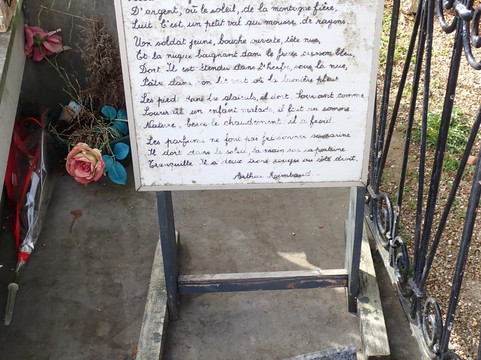 D'argent, où le soleil, de la montagne fière,
Luit: C'est un petit val qui mousse de rayons.
Un soldat jeune, bouche ouverte, tête nue,
Et la nuque baignant dans le frais cresson bleu,
Dort Il est étendu dans l'herbe, sous la nue,
Pâle dans son lit vert où la lumière pleut.
Les pieds dans les glaïeuls, il dort. Souriant comme
Sourirait un enfant malade, il fait un somme
Nature, berce le chaudement il a froid.
Les parfums ne font pas frissonner sa narine
Il dort dans le soleil, la main sur sa poitrine
Tranquille. Il a deux trous rouges au côté droit.
Arthur Rimbaud.